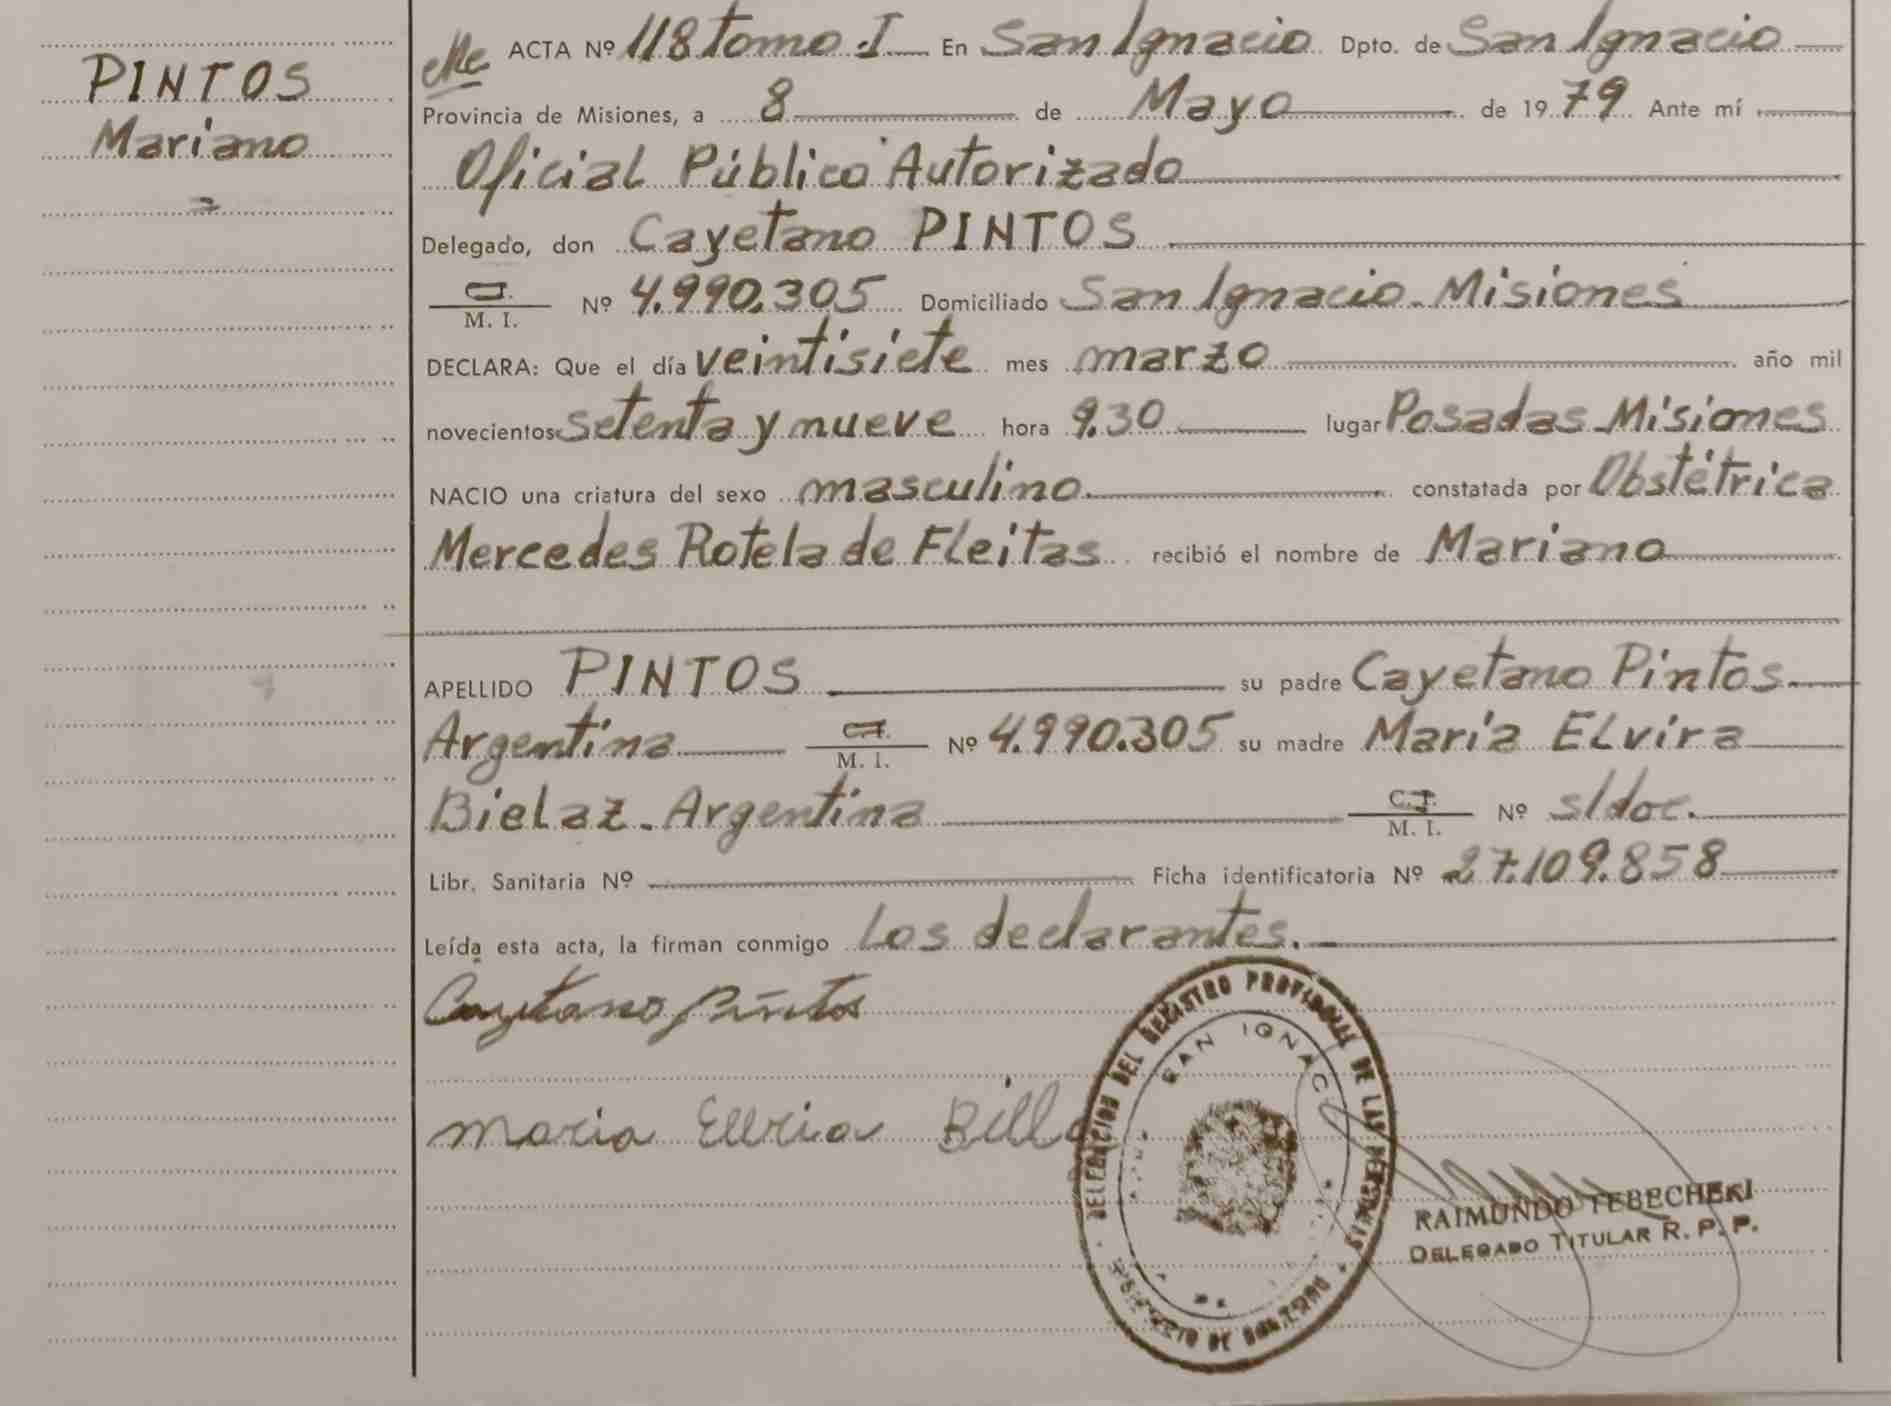 PINTOS
Mariano
ACTA Nº 118 tomo I En San Ignacio Dpto. de San Ignacio
Provincia de Misiones, a 8 de Mayo de 1979 Ante mí
Oficial Público Autorizado
Delegado, don Cayetano PINTOS
C.I.
M. I. Nº 4.990.305 Domiciliado San Ignacio - Misiones
DECLARA: Que el día veintisiete mes marzo año mil
novecientos setenta y nueve hora 9.30 lugar Posadas - Misiones
NACIO una criatura del sexo masculino constatada por Obstétrica
Mercedes Rotela de Fleitas recibió el nombre de Mariano
APELLIDO PINTOS su padre Cayetano Pintos
Argentina C.I.
M. I. Nº 4.990.305 su madre María ELvira
Bielaz - Argentina C.I.
M. I. Nº s/doc.
Libr. Sanitaria Nº Ficha identificatoria Nº 27.109.858
Leída esta acta, la firman conmigo los declarantes.
Cayetano Pintos
maria
DELEGACION DEL REGISTRO PROVINCIAL DE LAS PERSONAS
SAN IGNAC
MINISTERIO DE GOBIERNO
RAIMUNDO TEBECHERI
DELEGADO TITULAR R. P. P.